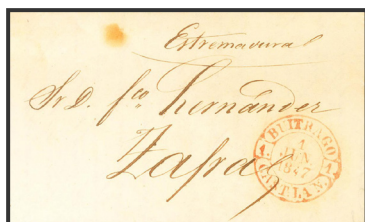 Estremadura
Sr. D. Fco Hernandez
Zafra
BUITRAGO
1
JUN.
1847
CAST.LA N.